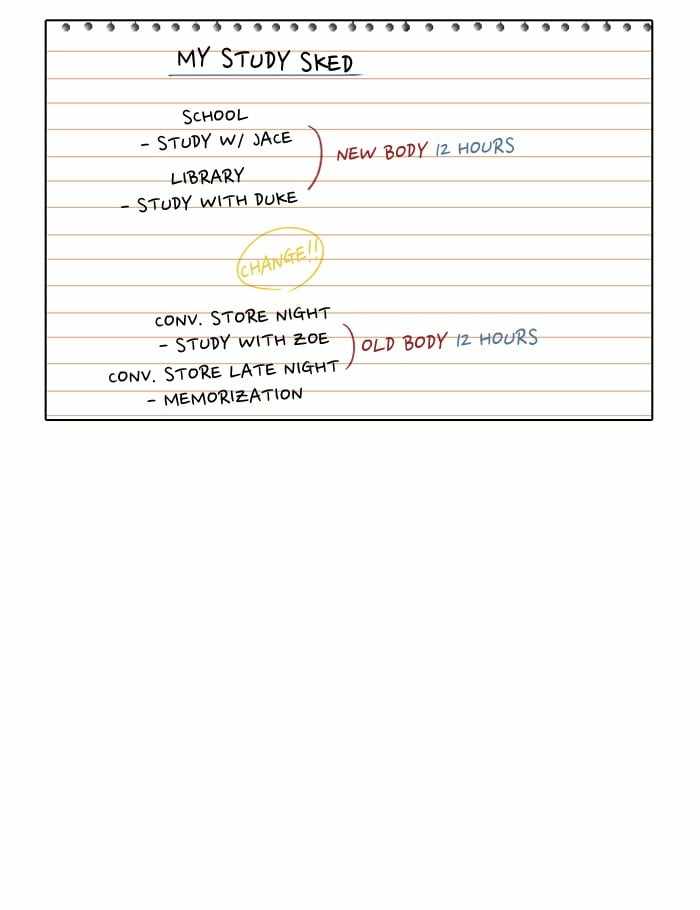 MY STUDY SKED
SCHOOL
- STUDY W/ JACE
NEW BODY 12 HOURS
LIBRARY
- STUDY WITH DUKE
CHANGE!!
CONV. STORE NIGHT
- STUDY WITH ZOE
OLD BODY 12 HOURS
CONV. STORE LATE NIGHT
- MEMORIZATION